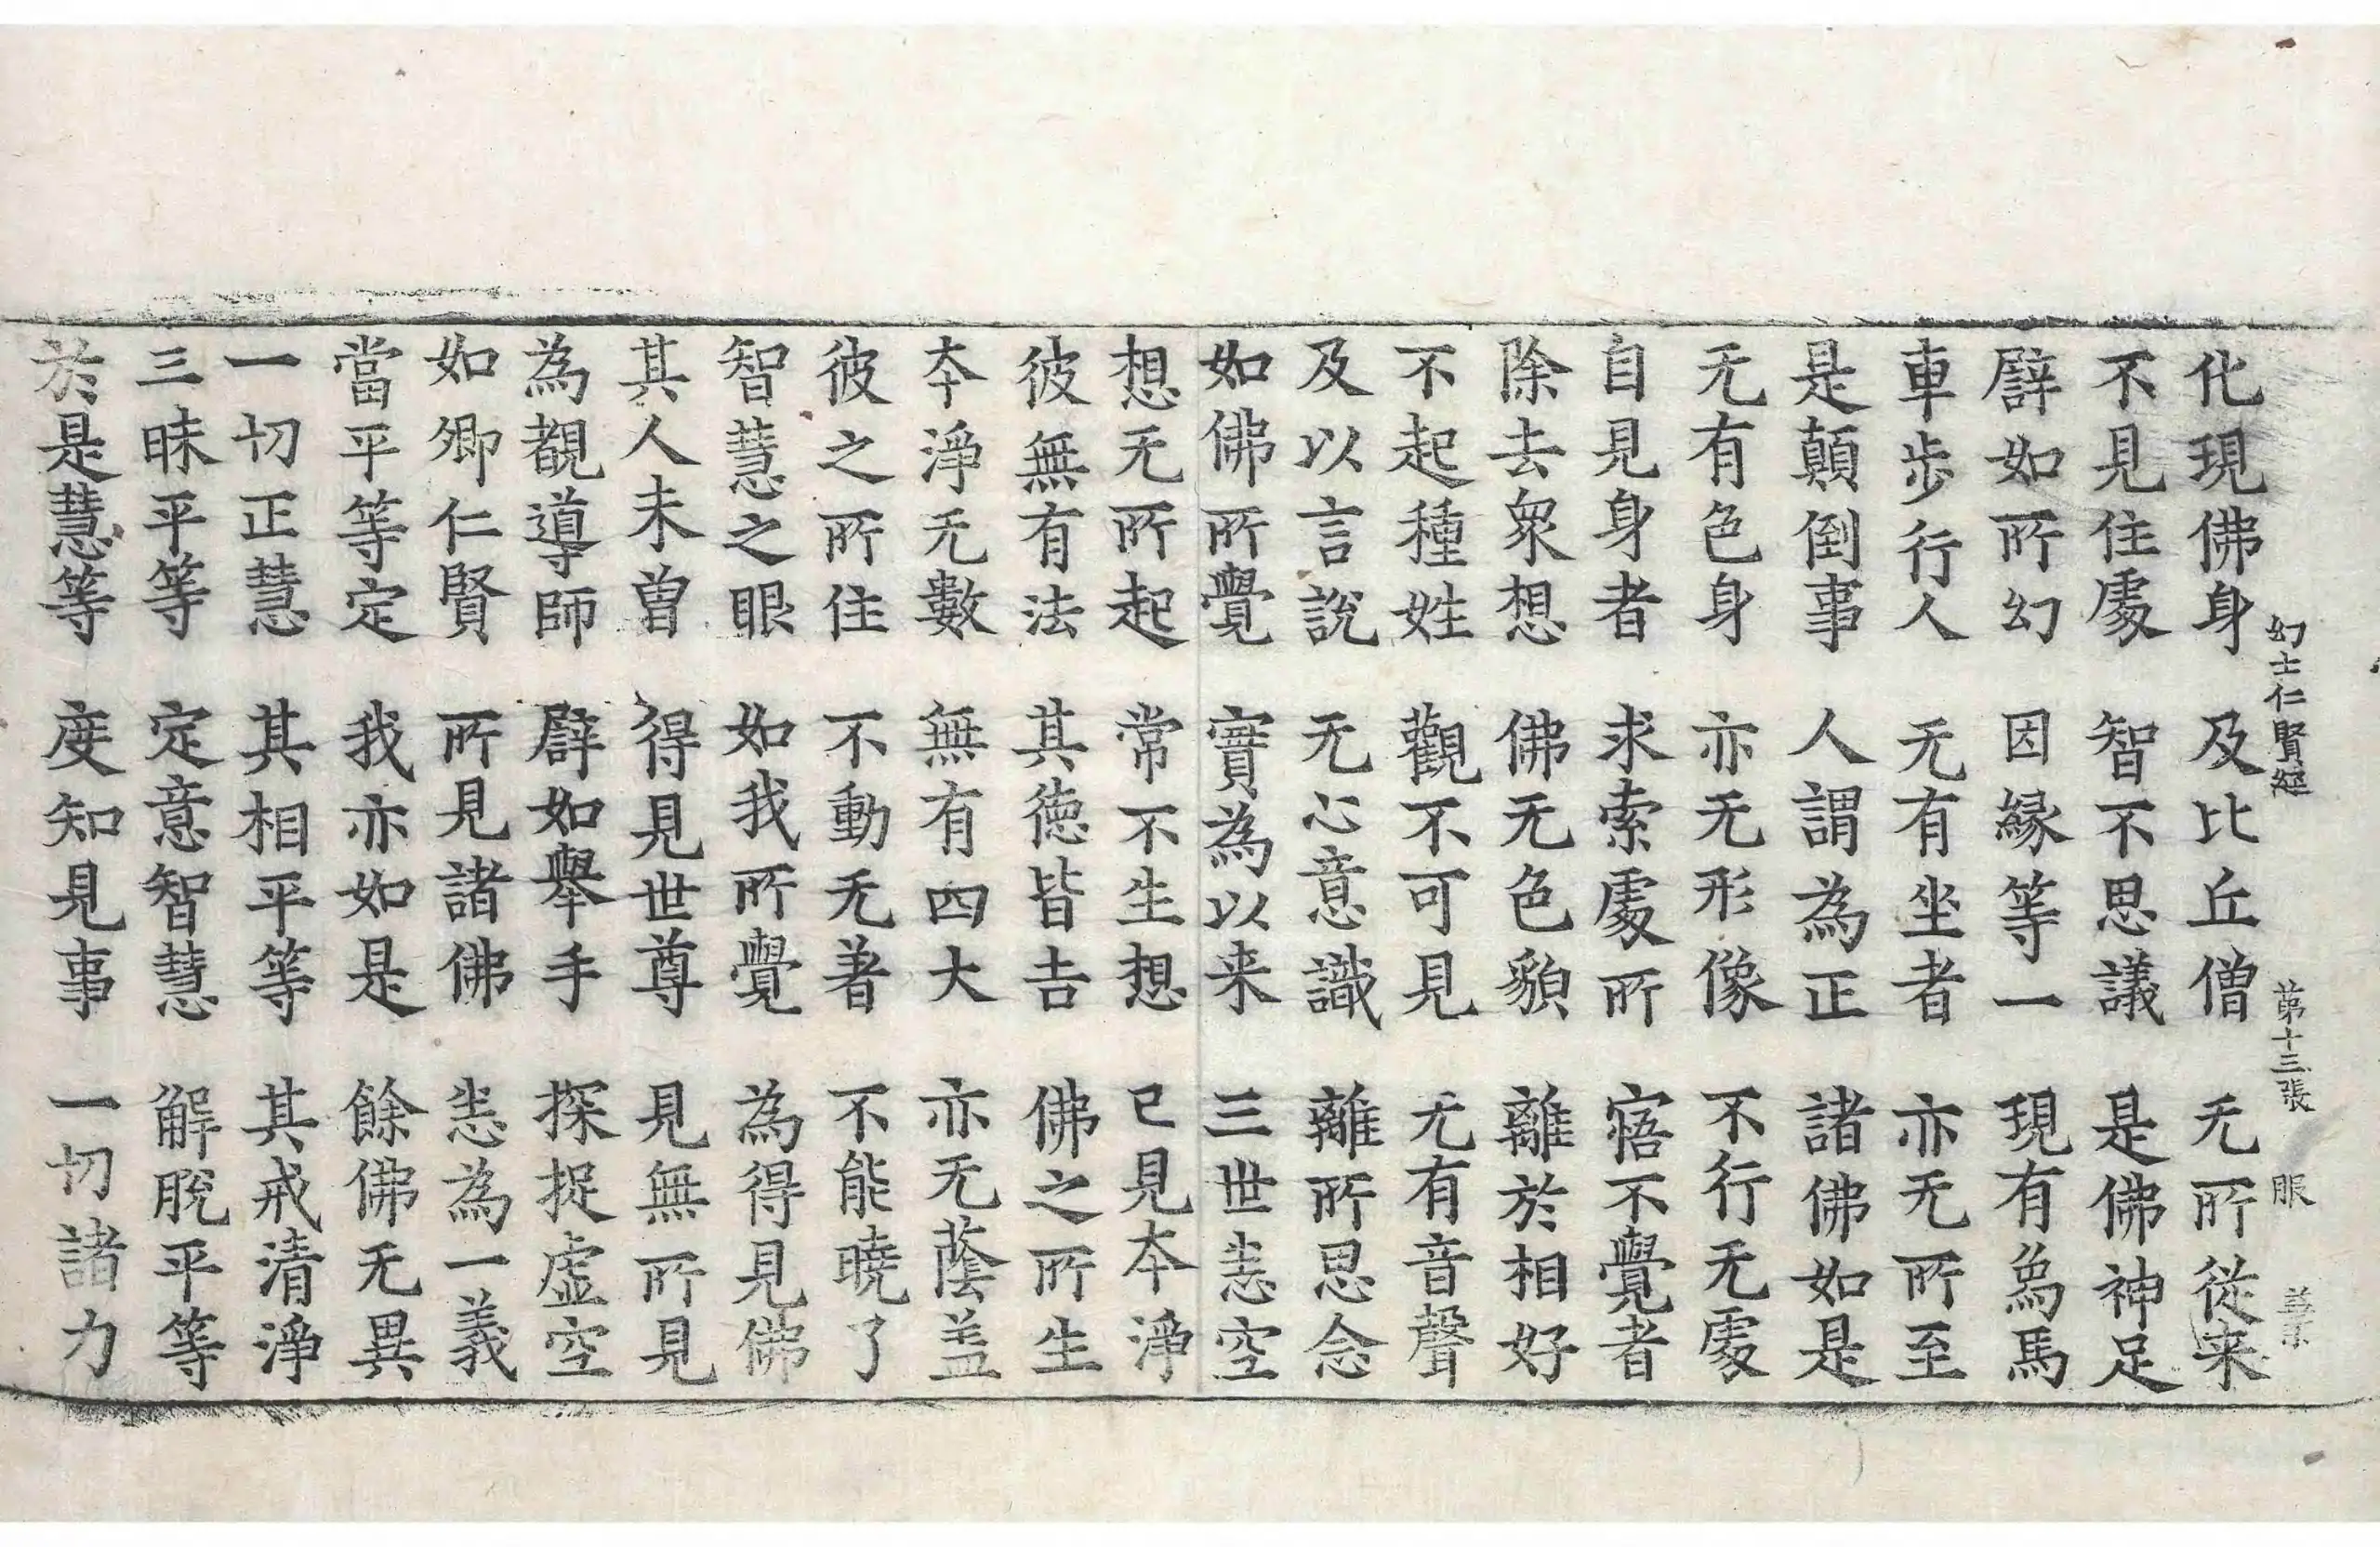 幻士仁賢經 第十三張 服
化現佛身 及比丘僧 无所従来
不見住處 智不思議 是佛神足
譬如所幻 因縁等一 現有烏馬
車步行人 无有坐者 亦无所至
是顛倒事 人謂為正 諸佛如是
无有色身 亦无形像 不行无處
自見身者 求索處所 寤不覺者
除去衆想 佛无色貌 離於相好
不起種姓 觀不可見 无有音聲
及以言說 无心意識 離所思念
如佛所覺 實為以来 三世恚空
想无所起 常不生想 已見本淨
彼無有法 其徳皆吉 佛之所生
本淨无數 無有四大 亦无蔭盖
彼之所住 不動无著 不能曉了
智慧之眼 如我所覺 為得見佛
其人未曽 得見世尊 見無所見
為覩導師 譬如舉手 探捉虛空
如卿仁賢 所見諸佛 恚為一義
當平等定 我亦如是 餘佛无異
一切正慧 其相平等 其戒清淨
三昧平等 定意智慧 解脫平等
於是慧等 度知見事 一切諸力